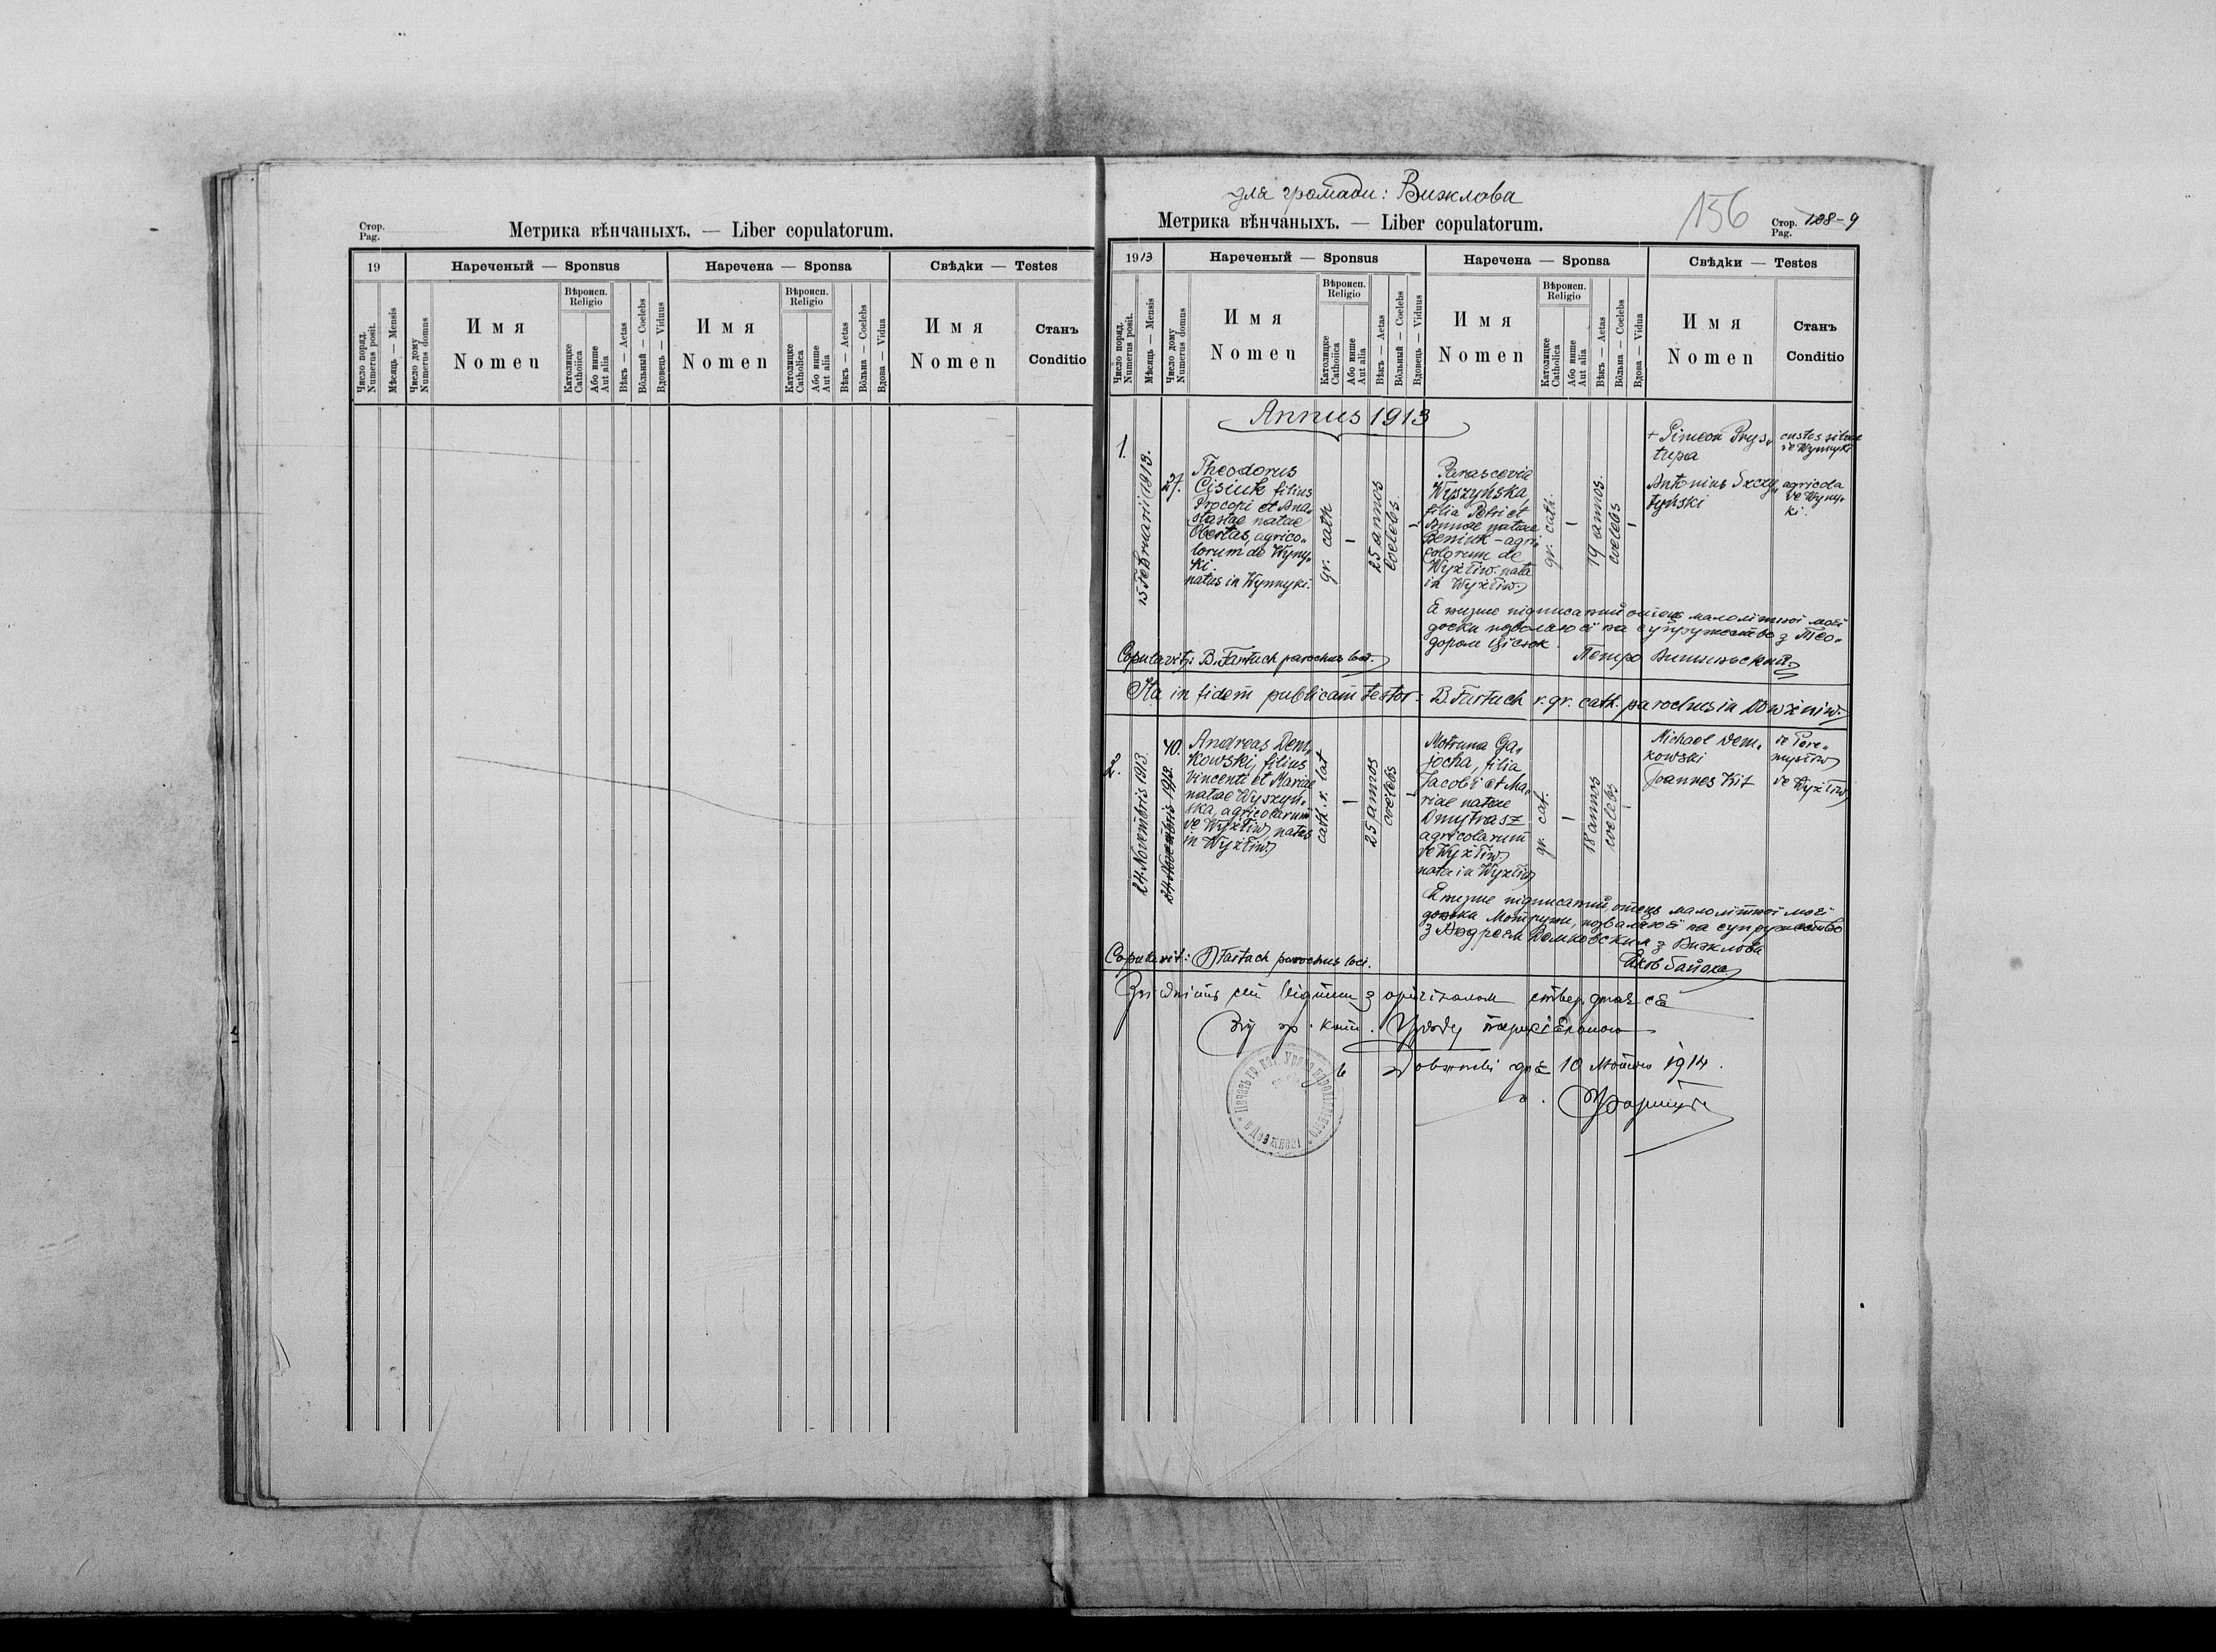 Стор.
Pag.
Метрика вѣнчаныхъ. — Liber copulatorum.
19
Нареченый — Sponsus
Наречена — Sponsa
Свѣдки — Testes
Число поряд.
Numerus posit.
Мѣсяць — Mensis
Число дому
Numerus domus
Имя
Nomen
Вѣроисп.
Religio
Католицке
Catholica
Або инше
Aut alia
Вѣкъ — Aetas
Вôльный — Coelebs
Вдовець — Viduus
Имя
Nomen
Вѣроисп.
Religio
Католицке
Catholica
Або инше
Aut alia
Вѣкъ — Aetas
Вôльна — Coelebs
Вдова — Vidua
Имя
Nomen
Станъ
Conditio
для громади: Вижлова
Метрика вѣнчаныхъ. — Liber copulatorum.
156
Стор.
Pag.
108-9
1913
Нареченый — Sponsus
Наречена — Sponsa
Свѣдки — Testes
Число поряд.
Numerus posit.
Мѣсяць — Mensis
Число дому
Numerus domus
Имя
Nomen
Вѣроисп.
Religio
Католицке
Catholica
Або инше
Aut alia
Вѣкъ — Aetas
Вôльный — Coelebs
Вдовець — Viduus
Имя
Nomen
Вѣроисп.
Religio
Католицке
Catholica
Або инше
Aut alia
Вѣкъ — Aetas
Вôльна — Coelebs
Вдова — Vidua
Имя
Nomen
Станъ
Conditio
Annus 1913
1.
15 Februarii 1913.
27.
Theodorus
Cisiuk filius
Procopi et Ana„
stasiae natae
Obertas, agrico„
lorum de Wyny„
ki.
natus in Wynnyki.
gr. cath
—
25 annos
coelebs.
—
Parascevia
Wyszyńska,
filia Petri et
Annae natae
Beniuk - agri„
colorum de
Wyżliw. nata
in Wyżliw.
gr. cath.
—
19 annos.
coelebs
—
+ Simeon Prys„
tupa
custos silvae
de Wynnyki
Antonius
tyński
agricola
de Wyny„
ki.
Я низше підписаний отець малолітної моєї
доски позволяю єї на супружество з Тео„
дором Цісюк.
Петро Вишинський
Copulavit: B. Fartuch parochus loci.
Ita in fidem publicam testor: B. Fartuch r. gr. cath. parochus in Dowżniw.
2.
24. Novembris 1913.
24. Novembris 1913.
40.
Andreas Dem„
kowski, filius
Vincenti et Mariae
natae Wyszyn„
ska, agricolarum
de Wyżliw, natus
in Wyżliw.
cath. r. lat
—
25 annos
coelebs
—
Motruna Ga„
jocha, filia
Jacobi et Ma„
riae natae
Dmytrasz
agricolarum
de Wyżliw
nata in Wyżliw
gr. cat.
—
18 annos
coelebs
—
Michael Dem„
kowski
de Pere„
mysłiw
Joannes Kit
de Wyżliw
Я низше підписаний, отець малолітної моєї
доньки Мотруни, позваляю єї на супружество
з Андреєм Демковским з Вижлова
Яков Гайоха
Copulavit: B Fartuch parochus loci.
Згідність сеї з оріґіналом стверджає ся
гр. кат. Уряду парохіяльного
Довжневі дня 10 1914.